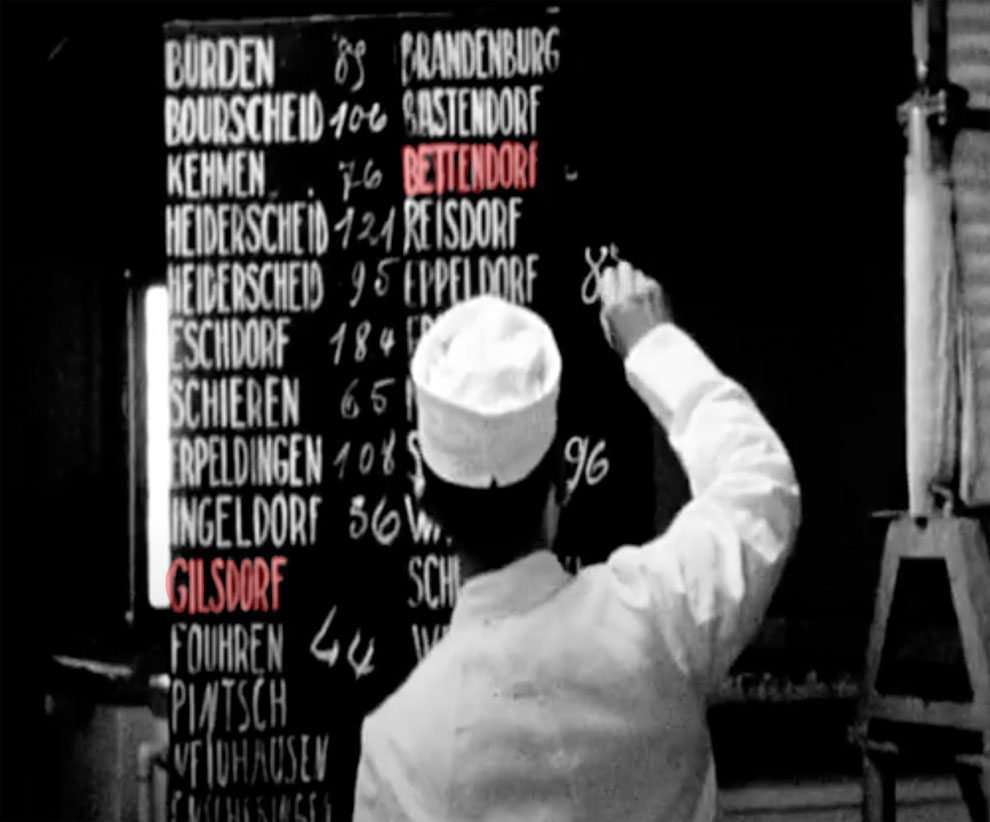 BÜRDEN 89 BRANDENBURG
BOURSCHEID 106 BASTENDORF
KEHMEN 76 BETTENDORF
HEIDERSCHEID 121 REISDORF
HEIDERSCHEID 95 EPPELDORF
ESCHDORF 184
SCHIEREN 65
ERPELDINGEN 108 96
INGELDORF 56
GILSDORF
FOUHREN 44
PINTSCH